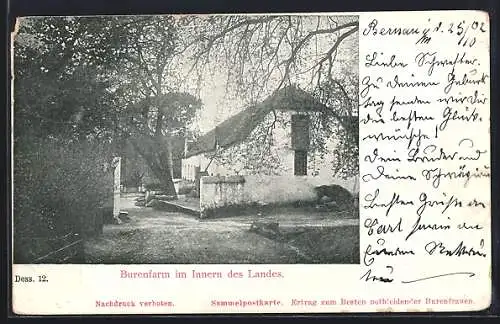 Bernau i/M. d. 25/10 02
Liebe Schwester.
Zu Deinem Geburts
tag senden wir Dir
die besten Glück-
wünsche!
Dein Bruder und
Deine Schwägerin
Besten Grüße an
Carl sowie an
Euren
Burenfarm im Innern des Landes.
Dess. 12.
Nachdruck verboten. Sammelpostkarte. Ertrag zum Besten nothleidender Burenfrauen.